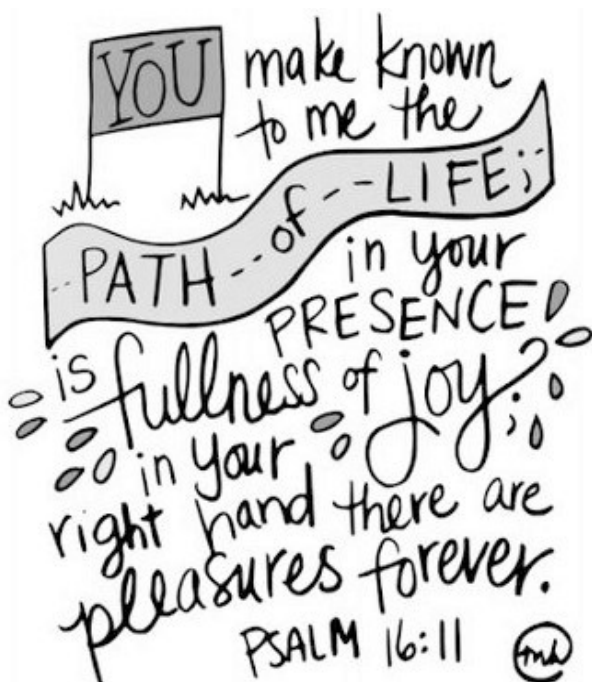 YOU make known
to me the
PATH -- of -- LIFE;
in your
PRESENCE
is fullness of joy;
in your
right hand there are
pleasures forever.
PSALM 16:11